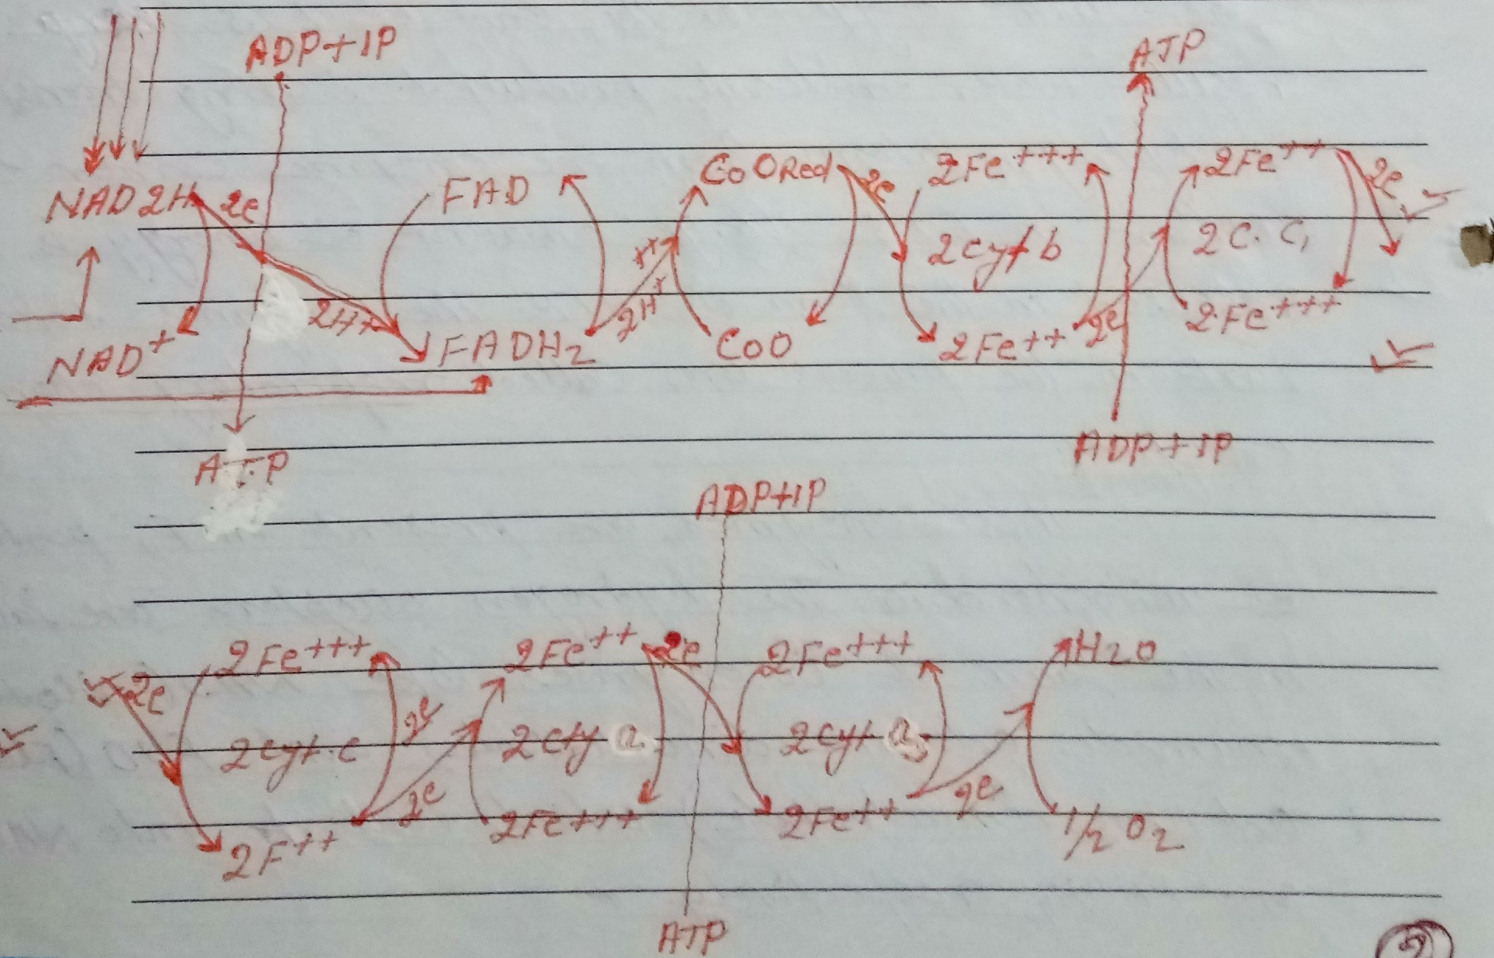 ADP+IP ATP
NAD2H 2e FAD CoQRed 2e 2Fe+++ 2Fe++ 2e
2H+ 2H+ 2cyt b 2 C. C1
NAD+ FADH2 CoQ 2Fe++ 2e 2Fe+++
ATP ADP+IP
ADP+IP
2e 2Fe+++ 2Fe++ 2e 2Fe+++ H2O
2cyt.c 2e 2cty a 2cyt a3
2F++ 2e 2Fe+++ 2Fe++ 2e 1/2 O2
ATP